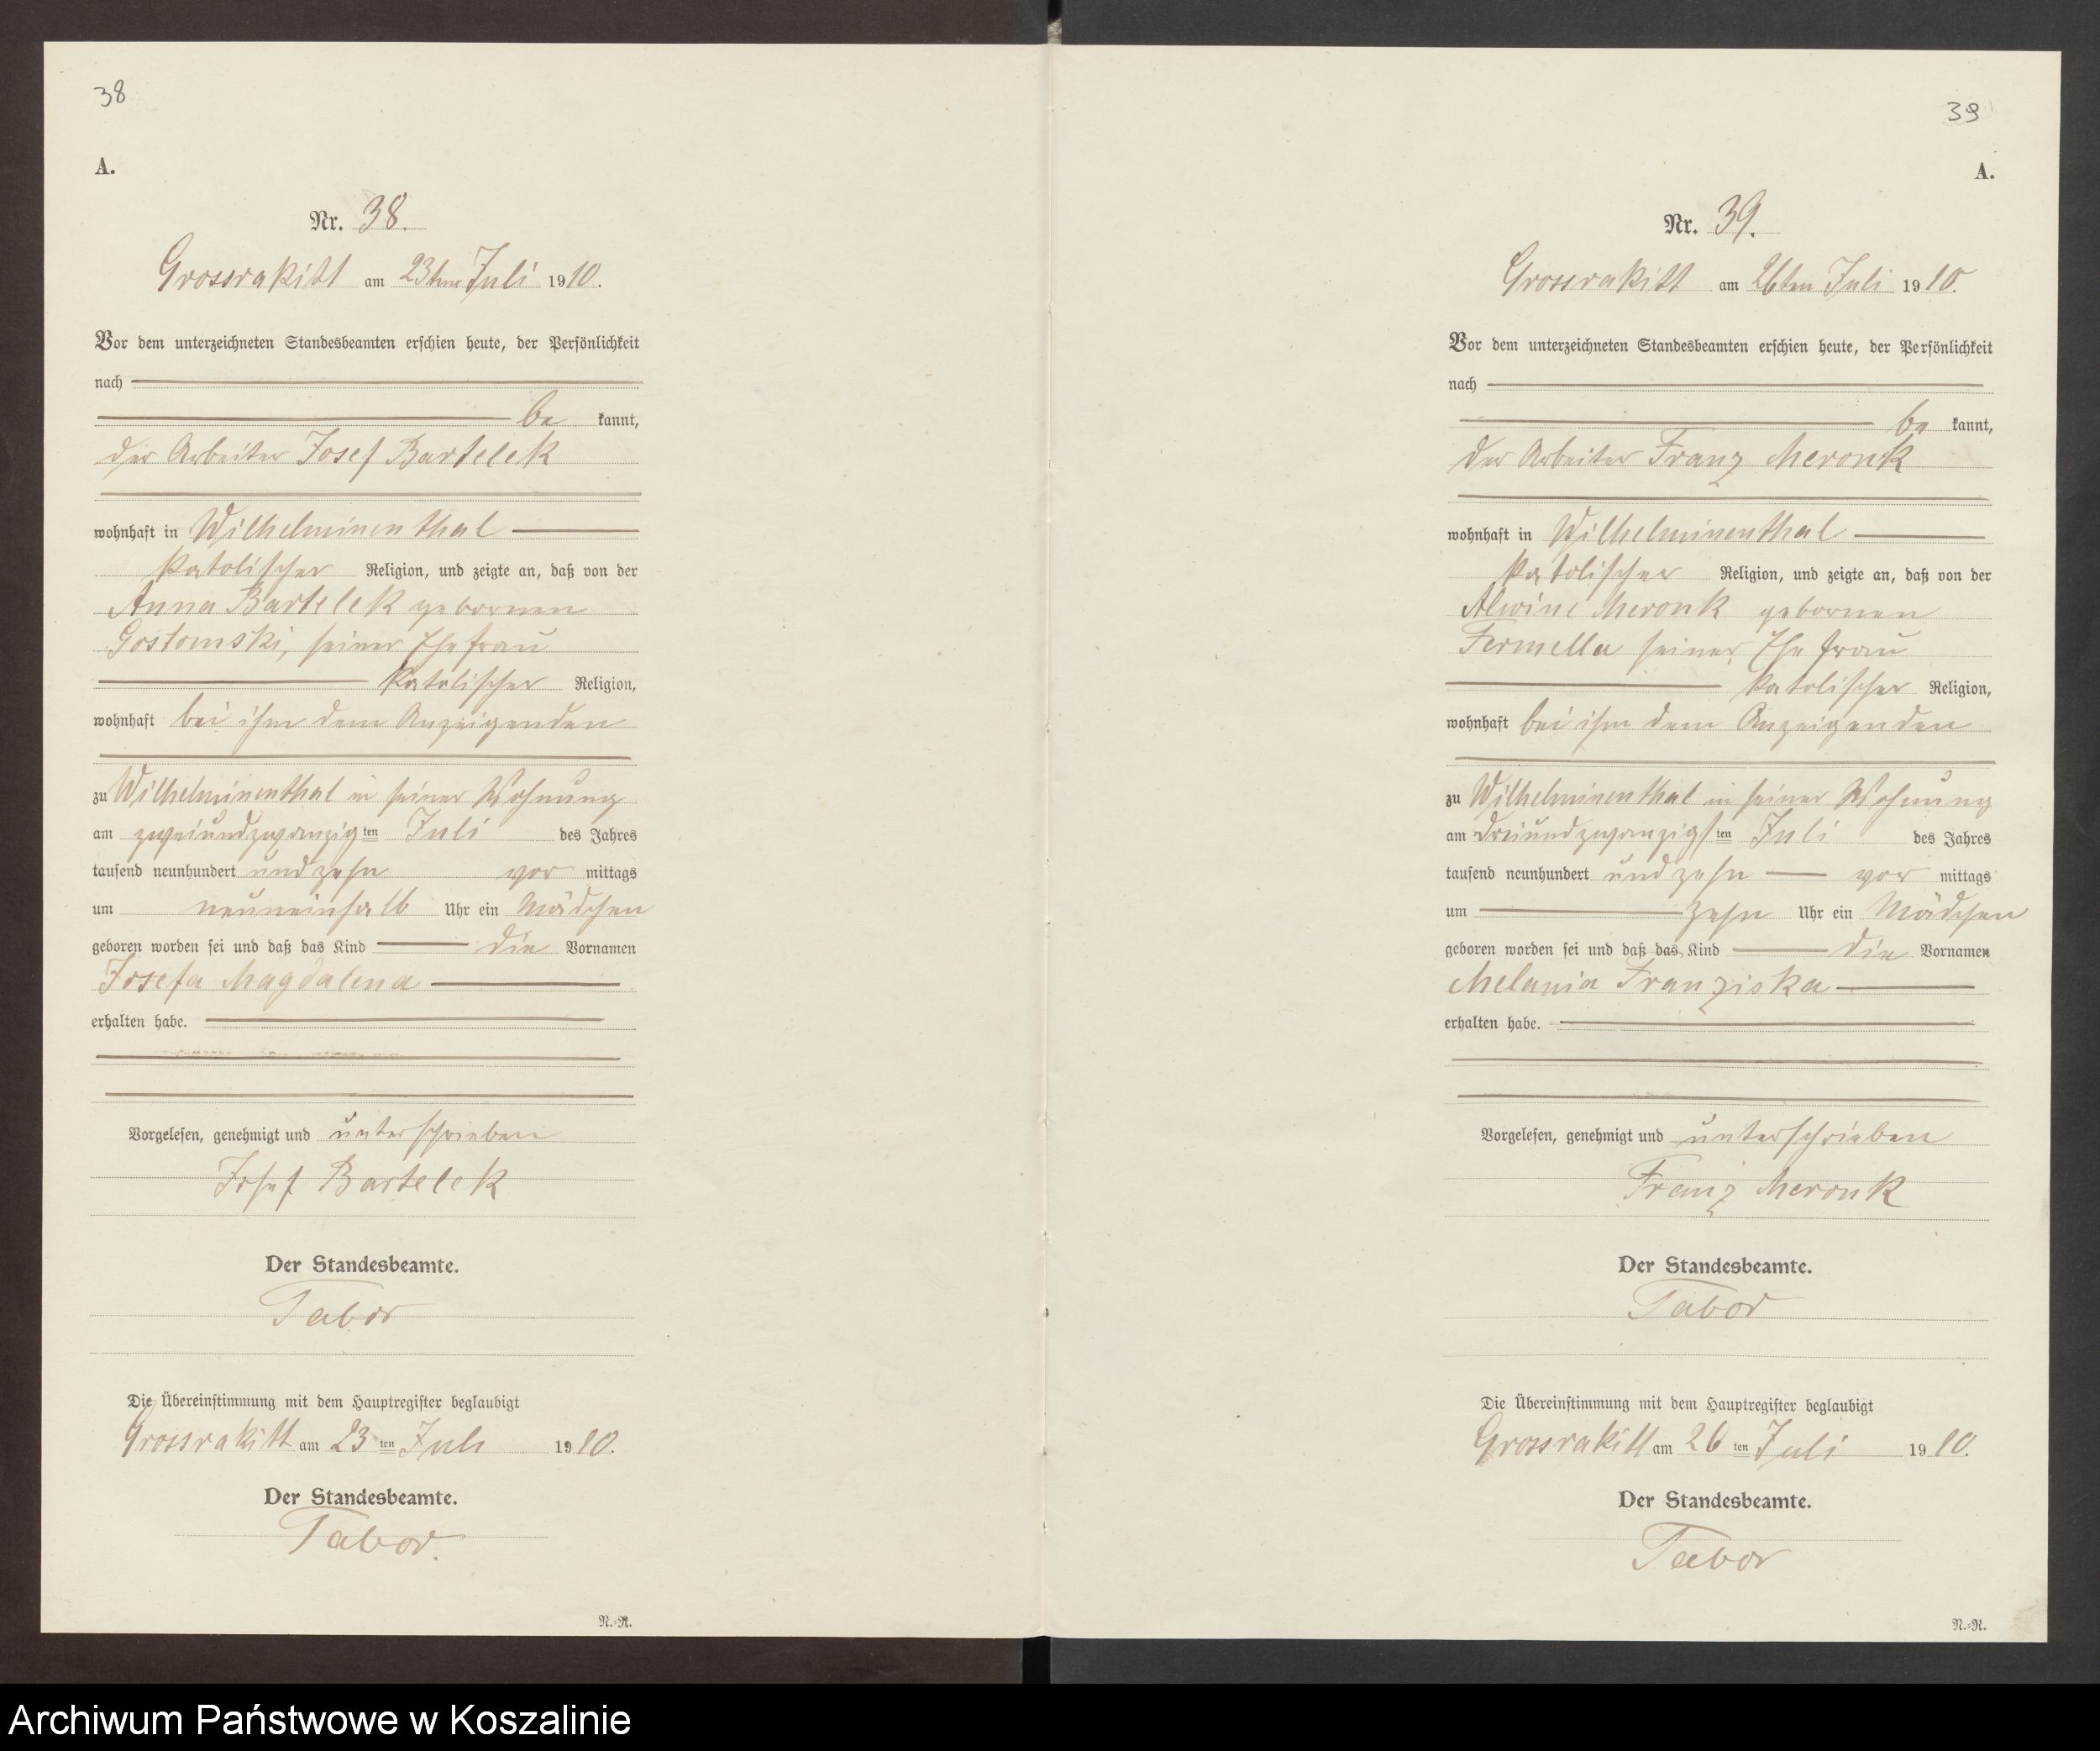 38
A.
Nr. 38.
Grossrakitt am 23ten Juli 1910.
Vor dem unterzeichneten Standesbeamten erschien heute, der Persönlichkeit
nach
be kannt,
der Arbeiter Josef Bartelek
wohnhaft in Wilhelminenthal
katolischer Religion, und zeigte an, daß von der
Anna Bartelek gebornen
Gostomski, seiner Ehefrau
katolischer Religion,
wohnhaft bei ihm dem Anzeigenden
zu Wilhelminenthal in seiner Wohnung
am zweiundzwanzigten Juli des Jahres
tausend neunhundert und zehn vor mittags
um neuneinhalb Uhr ein Mädchen
geboren worden sei und daß das Kind die Vornamen
Josefa Magdalena
erhalten habe.
Vorgelesen, genehmigt und unterschrieben
Josef Bartelek
Der Standesbeamte.
Tabor
Die Übereinstimmung mit dem Hauptregister beglaubigt
Grossrakitt am 23ten Juli 1910.
Der Standesbeamte.
Tabor.
N.-R.
39
A.
Nr. 39.
Grossrakitt am 26ten Juli 1910.
Vor dem unterzeichneten Standesbeamten erschien heute, der Persönlichkeit
nach
be kannt,
der Arbeiter Franz Meronk
wohnhaft in Wilhelminenthal
katolischer Religion, und zeigte an, daß von der
Alwine Meronk gebornen
Fermella seiner Ehefrau
katolischer Religion,
wohnhaft bei ihm dem Anzeigenden
zu Wilhelminenthal in seiner Wohnung
am dreiundzwanzigsten Juli des Jahres
tausend neunhundert und zehn vor mittags
um zehn Uhr ein Mädchen
geboren worden sei und daß das Kind die Vornamen
Melania Franziska
erhalten habe.
Vorgelesen, genehmigt und unterschrieben
Franz Meronk
Der Standesbeamte.
Tabor
Die Übereinstimmung mit dem Hauptregister beglaubigt
Grossrakitt am 26ten Juli 1910.
Der Standesbeamte.
Tabor
N.-R.
Archiwum Państwowe w Koszalinie